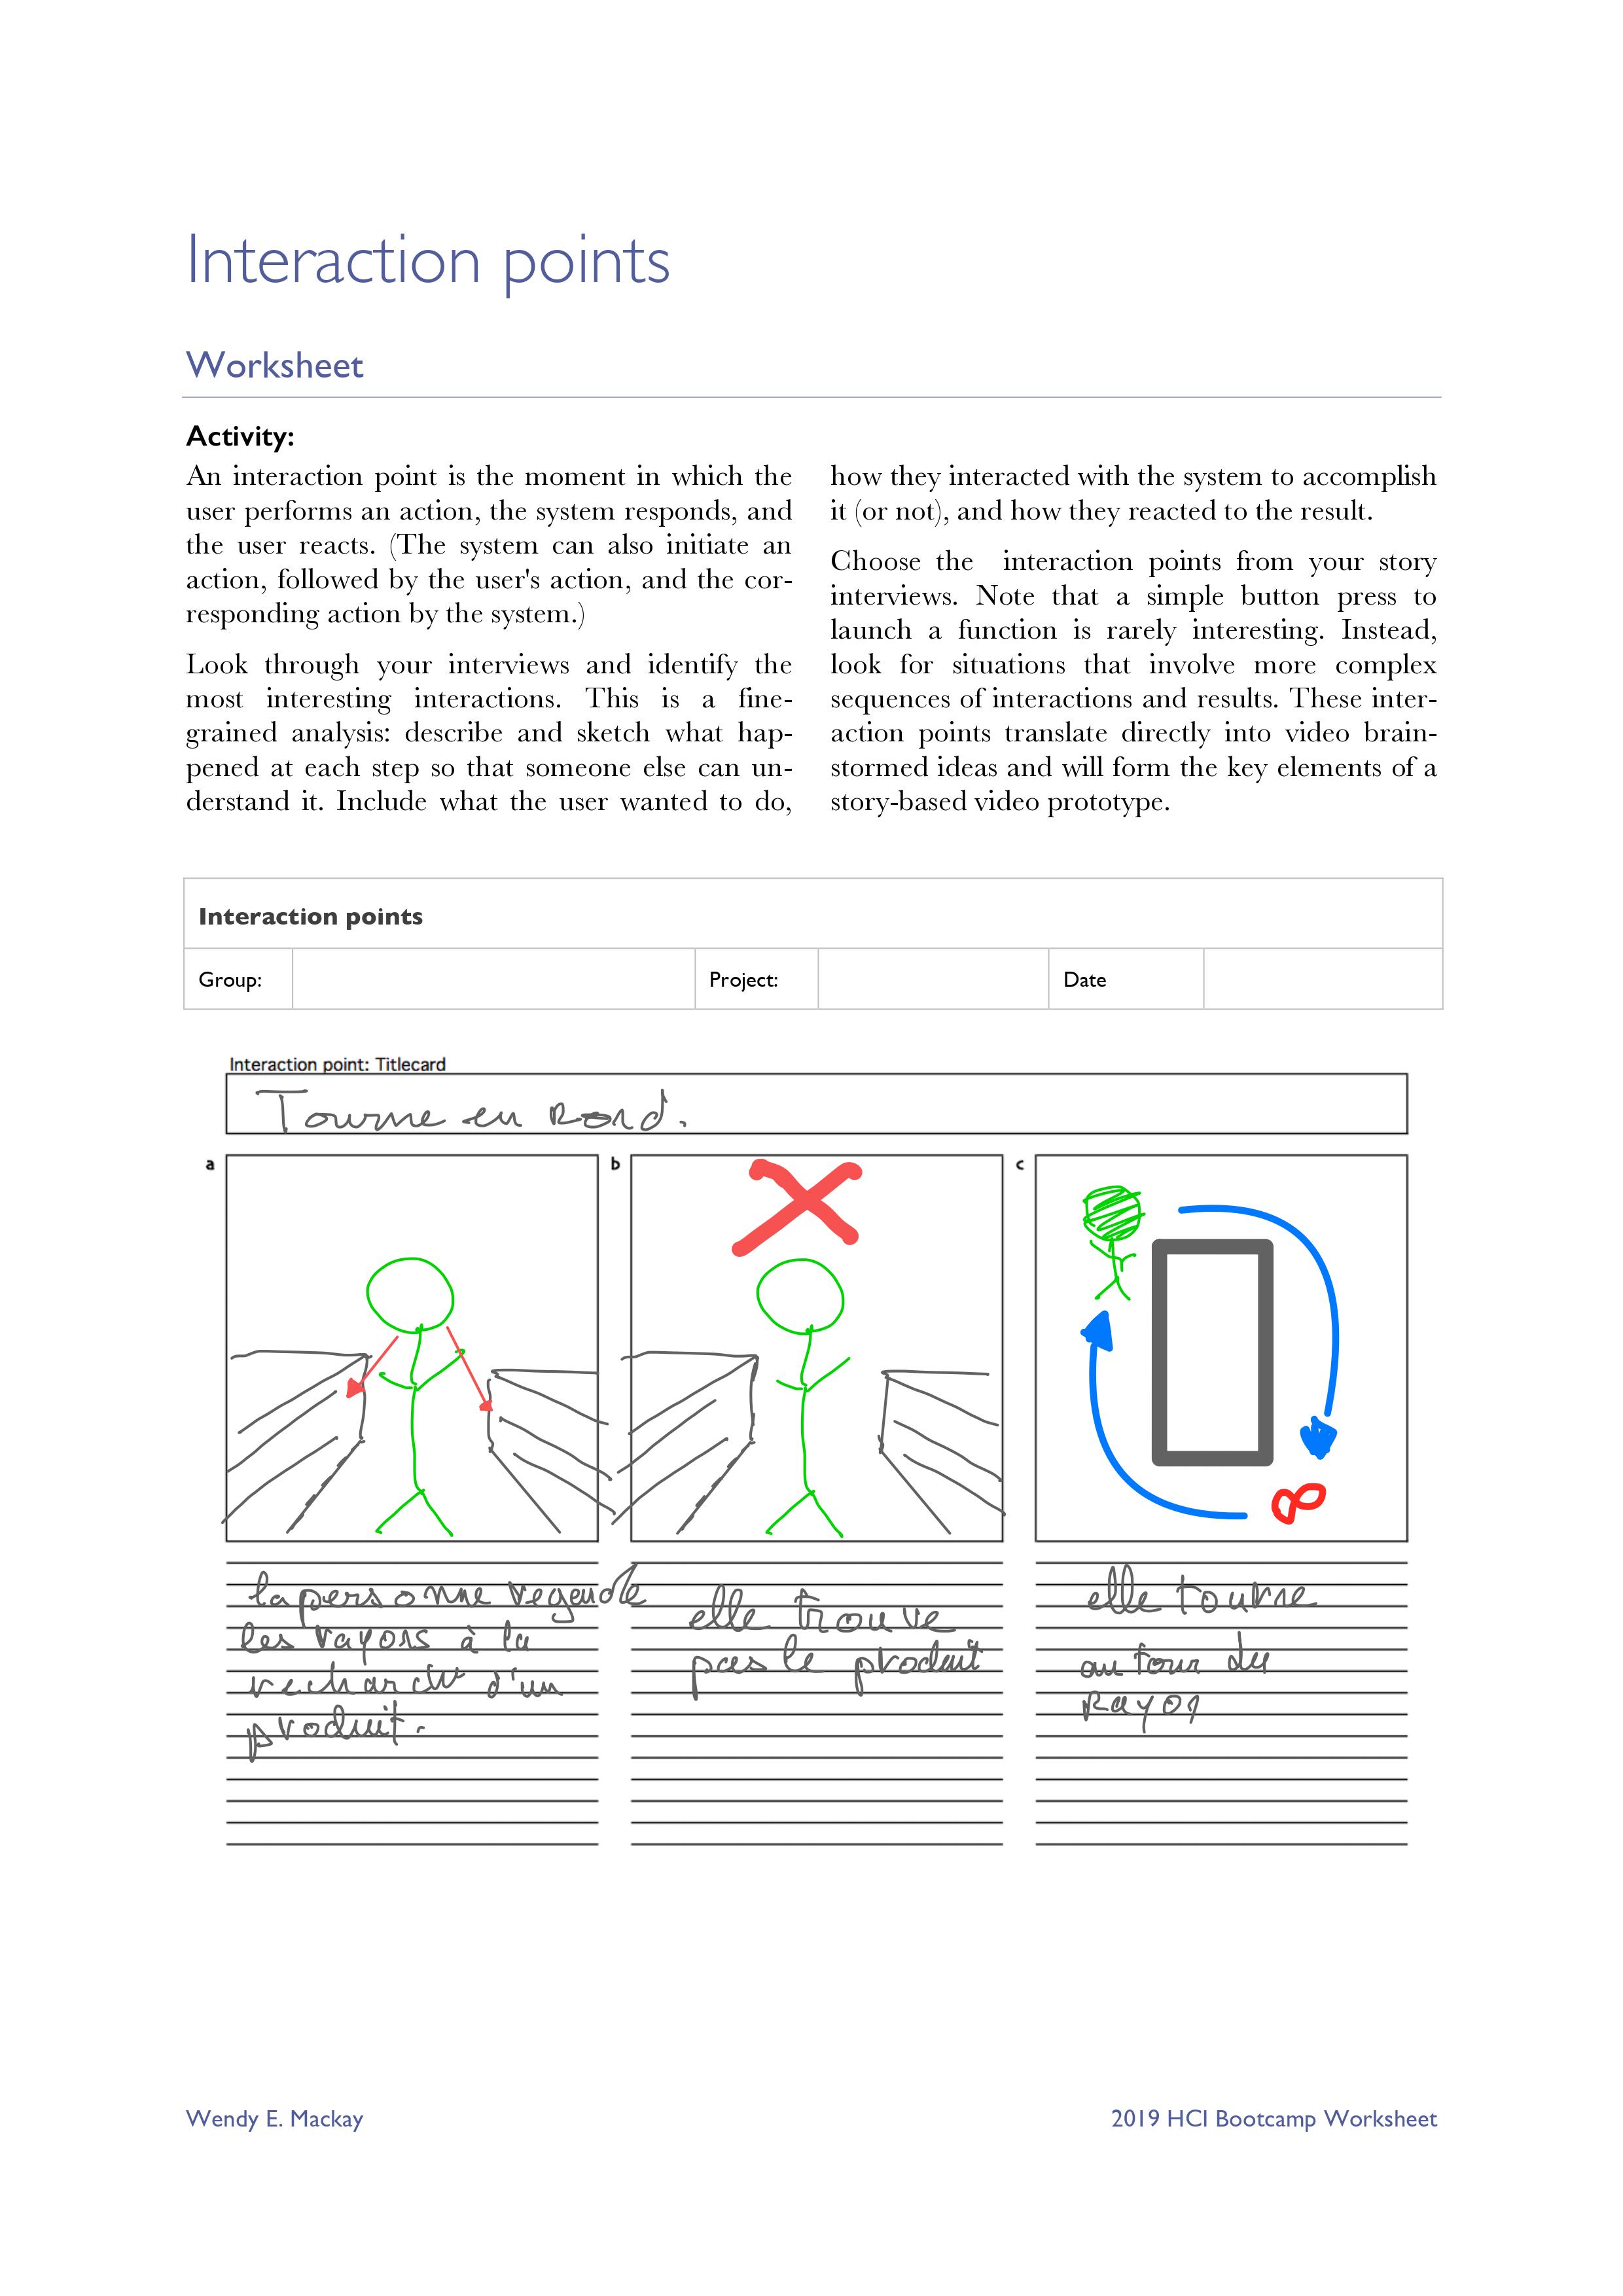 Interaction points
Worksheet
Activity:
An interaction point is the moment in which the
user performs an action, the system responds, and
the user reacts. (The system can also initiate an
action, followed by the user's action, and the cor-
responding action by the system.)
Look through your interviews and identify the
most interesting interactions. This is a fine-
grained analysis: describe and sketch what hap-
pened at each step so that someone else can un-
derstand it. Include what the user wanted to do,
how they interacted with the system to accomplish
it (or not), and how they reacted to the result.
Choose the interaction points from your story
interviews. Note that a simple button press to
launch a function is rarely interesting. Instead,
look for situations that involve more complex
sequences of interactions and results. These inter-
action points translate directly into video brain-
stormed ideas and will form the key elements of a
story-based video prototype.
Interaction points
Group:
Project:
Date
Interaction point: Titlecard
Tourne en Rond.
a
b
c
∞
la personne regarde
les rayons à la
recharche d'un
produit.
elle trouve
pas le produit
elle tourne
au tour du
Rayon
Wendy E. Mackay
2019 HCI Bootcamp Worksheet